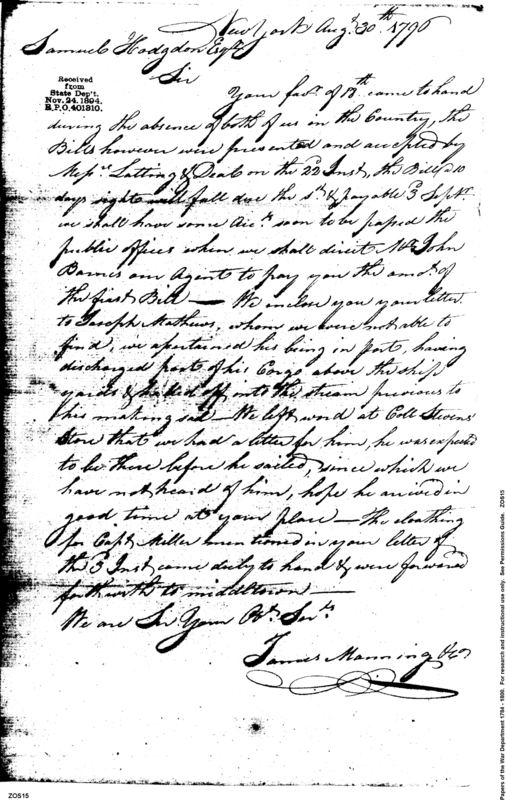 New York Augt. 30th 1796
Samuel Hodgdon Esqr
Sir
Received
from
State Dep't.
Nov. 24. 1894.
R.P.O, 401310.
Your favr. of 18th came to hand
during the absence of both of us in the Country, the
Bills however were presented and accepted by
Messrs. Latting & Deal on the 22d Inst, the Bills 10
days sight will fall due the & payable 3d Septr.
we shall have some Accts soon to be passed the
public offices when we shall direct Mr. John
Barnes our Agent to pay you the amot. of
the first Bill — We enclose you your letter
to Joseph Mathews, whom we were not able to
find, we ascertained his being in port, having
discharged part of his Cargo above the ship
yards & hauled off into the stream previous to
his making sail — We left word at Coll Stevens
Store that we had a letter for him, he was expected
to be there before he sailed, since which we
have not heard of him, hope he arrived in
good time at your place — The cloathing
for Capt. Miller mentioned in your letter of
the 3d Inst came duly to hand & were forward
forthwith to middletown —
We are Sir Your Obt. Servts
James Manning & Co
ZOS15
Papers of the War Department 1784 - 1800. For research and instructional use only. See Permissions Guide. ZOS15